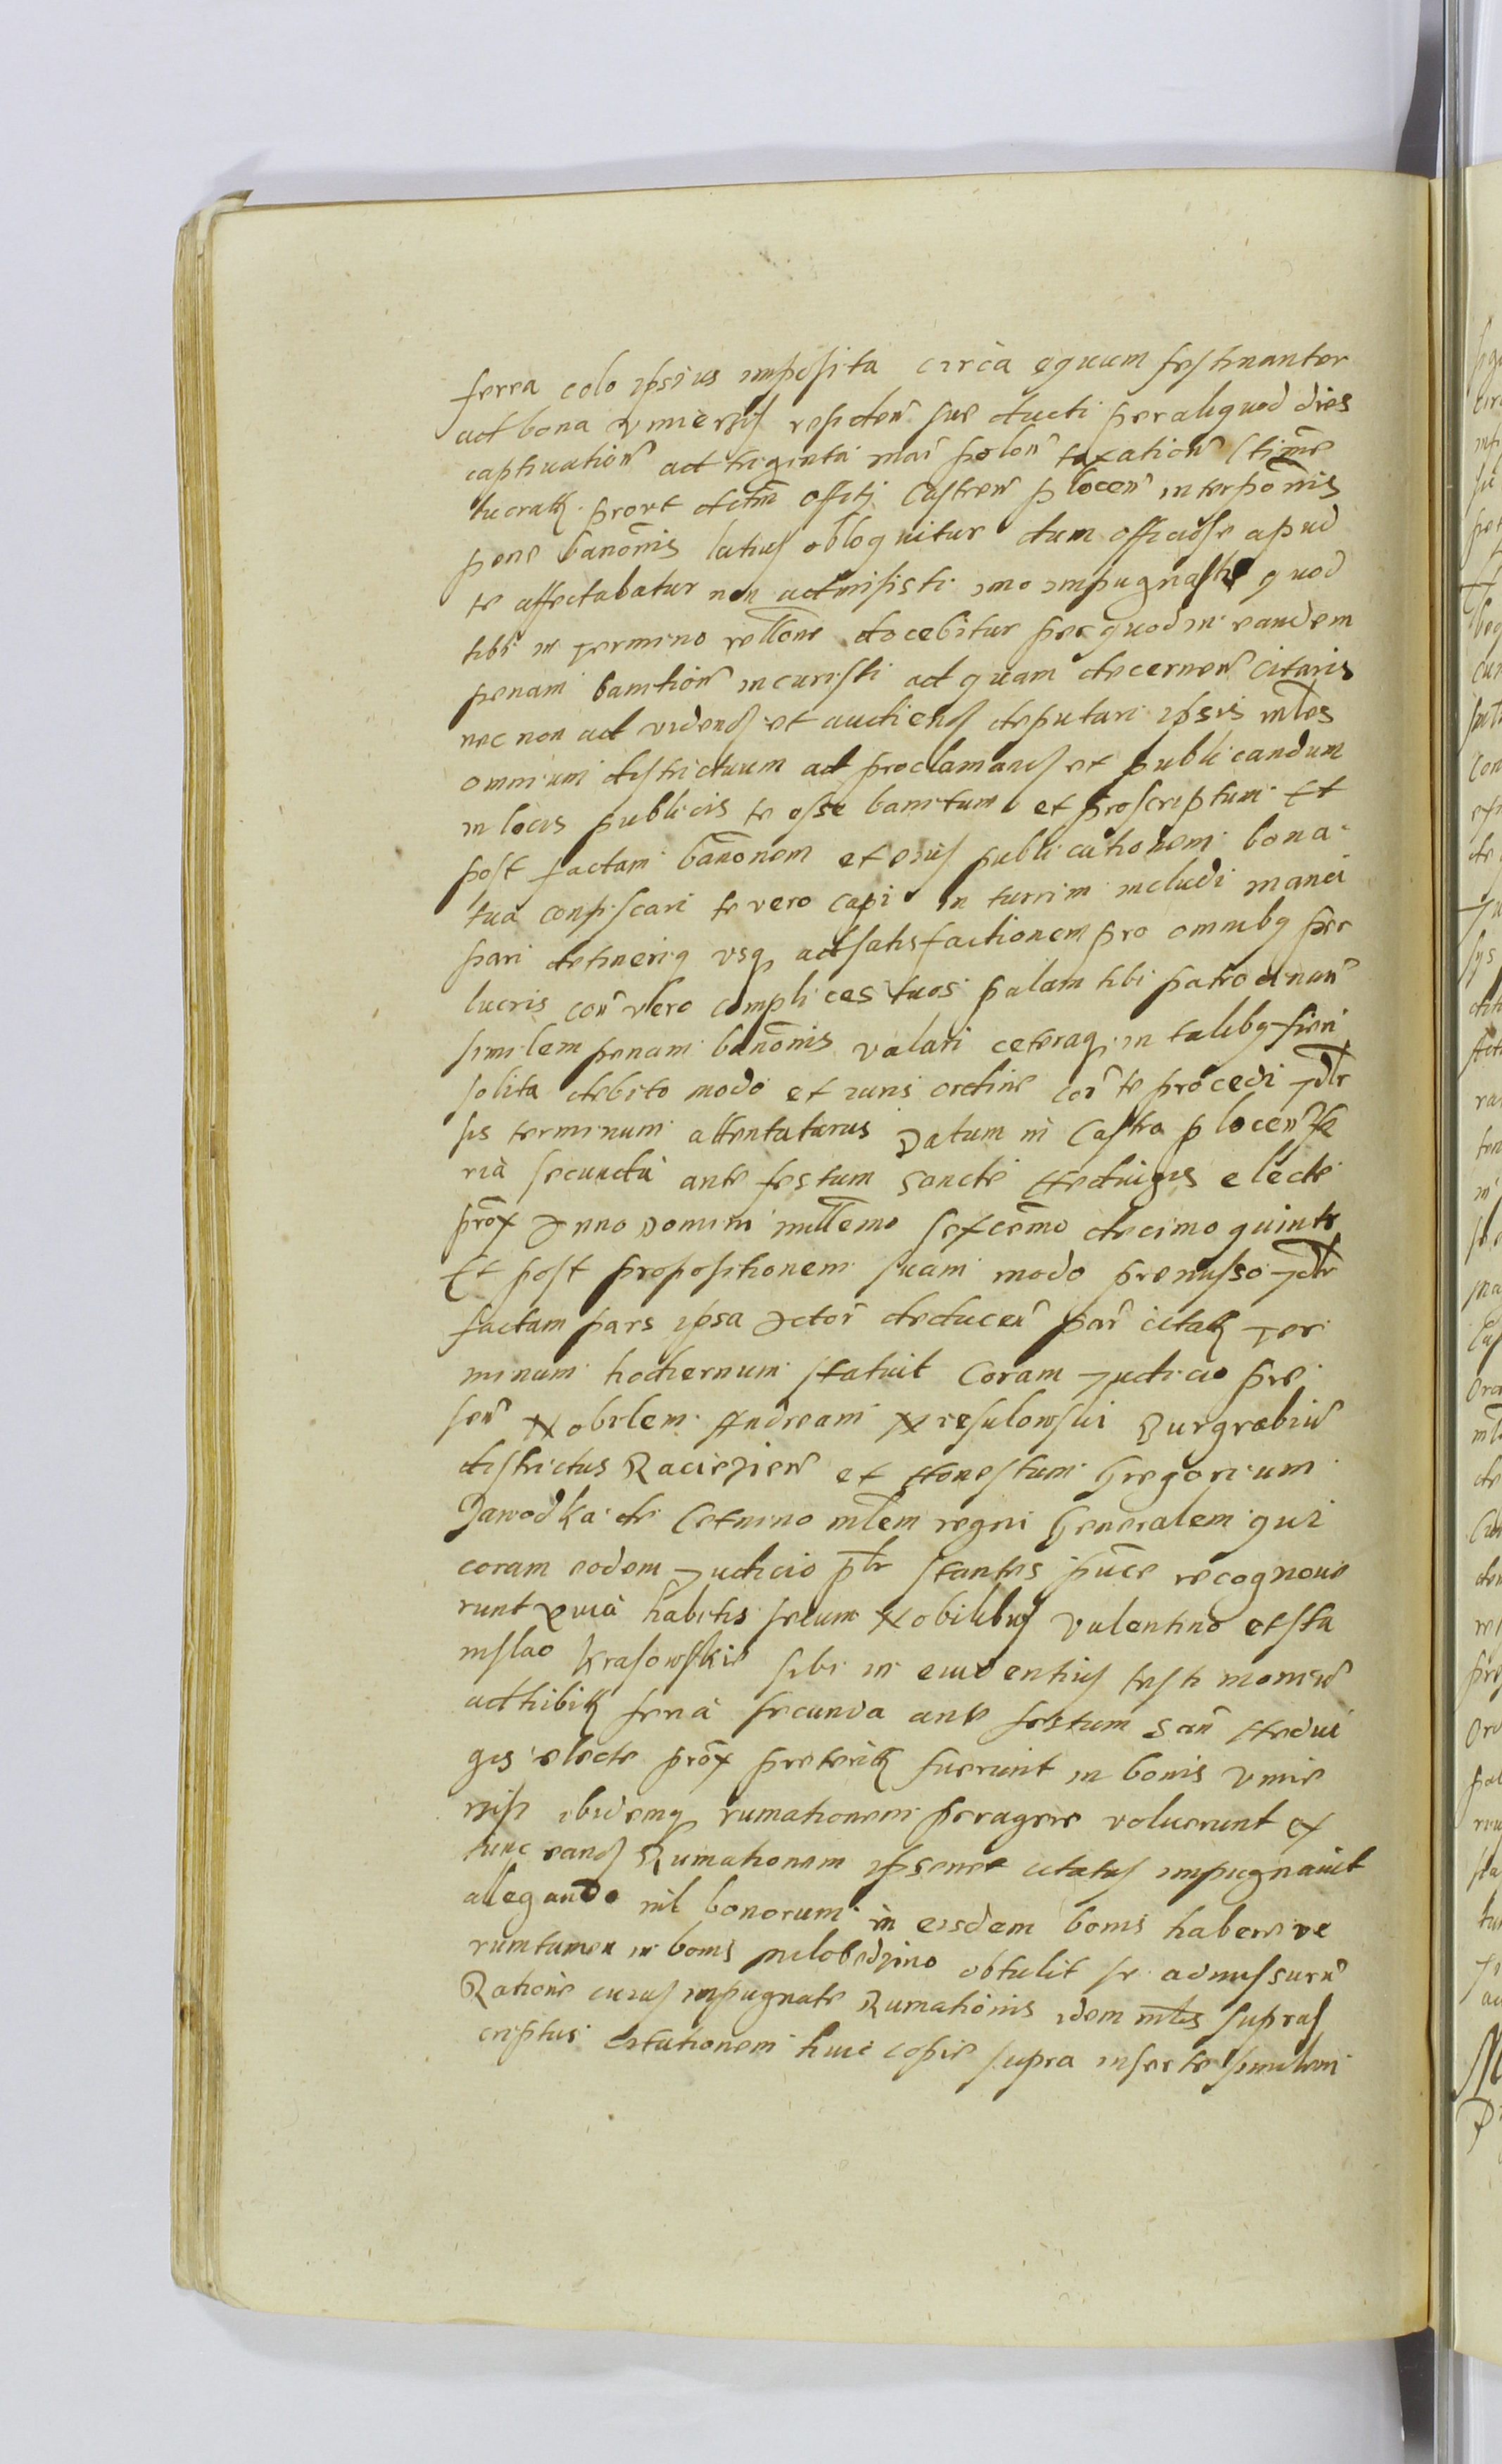 ferrea colo ipsius imposita circa equum festinanter
ad bona Vmierzis residen sue ducti per aliquod dies
captivation ad triginta mar polon taxation
lucrat prout dctm offitj Castren plocen interponis
pene banonis latius obloquitur dum officiose apud
te affectabatur non admisisti imo impugnasti quod
tibi in Termino rellone docebitur per quod in eandem
penam banition incuristi ad quam decernen citaris
nec non ad vidend et audiend deputari ipsis mles
omnium districtuum ad proclamand et publicandum
in locis publicis te esse banitum et proscriptum Et
post factam banonem et eius publicationem bona
tua confiscari te vero capi in turrim includi manci
pari detineriq vsq ad satisfactionem pro omnibq per
lucris con vero complices tuos palam tibi patrocinan
similem penam banonis valari ceteraq in talibq fieri
solita debito modo et iuris ordine con te procedi Jdlr
sis terminum attentaturus Datum in Castro plocen fe
ria secunda ante festum Sancte Heduigis electe
prox Anno Domini millemo sexcemo decimo quinto
Et post propositionem suam modo premisso Jdlr
factam pars ipsa Actor deducen par citat Ter
minum hodiernum statuit Coram Judicio pre
sen Nobilem Andream Burgrabiu
districtus Raciązien et Honestum Gregorium
Zawodka de Cetnino mlem regni Generalem qui
coram eodem Judicio plr stantes punce recognoue
runt Quia habitis secum Nobilibus Valentino et Sta
nislao Krasowskie sibi in euidentius testimoniu
adhibit feria secunda ante festum San Hedui
gis electe prox preterit fuerunt in bonis Vmie
rzisz ibidemq rumationem peragere voluerunt ex
tunc eand Rumationem ipsemet citatus impugnauit
allegando nil bonorum in eisdem bonis habere ve
rumtamen in bonis Milobedzino obtulit se admissuru
Ratione cuius impugnate Rumationis idem mles supras
criptus Citationem huic copie supra inserte similem